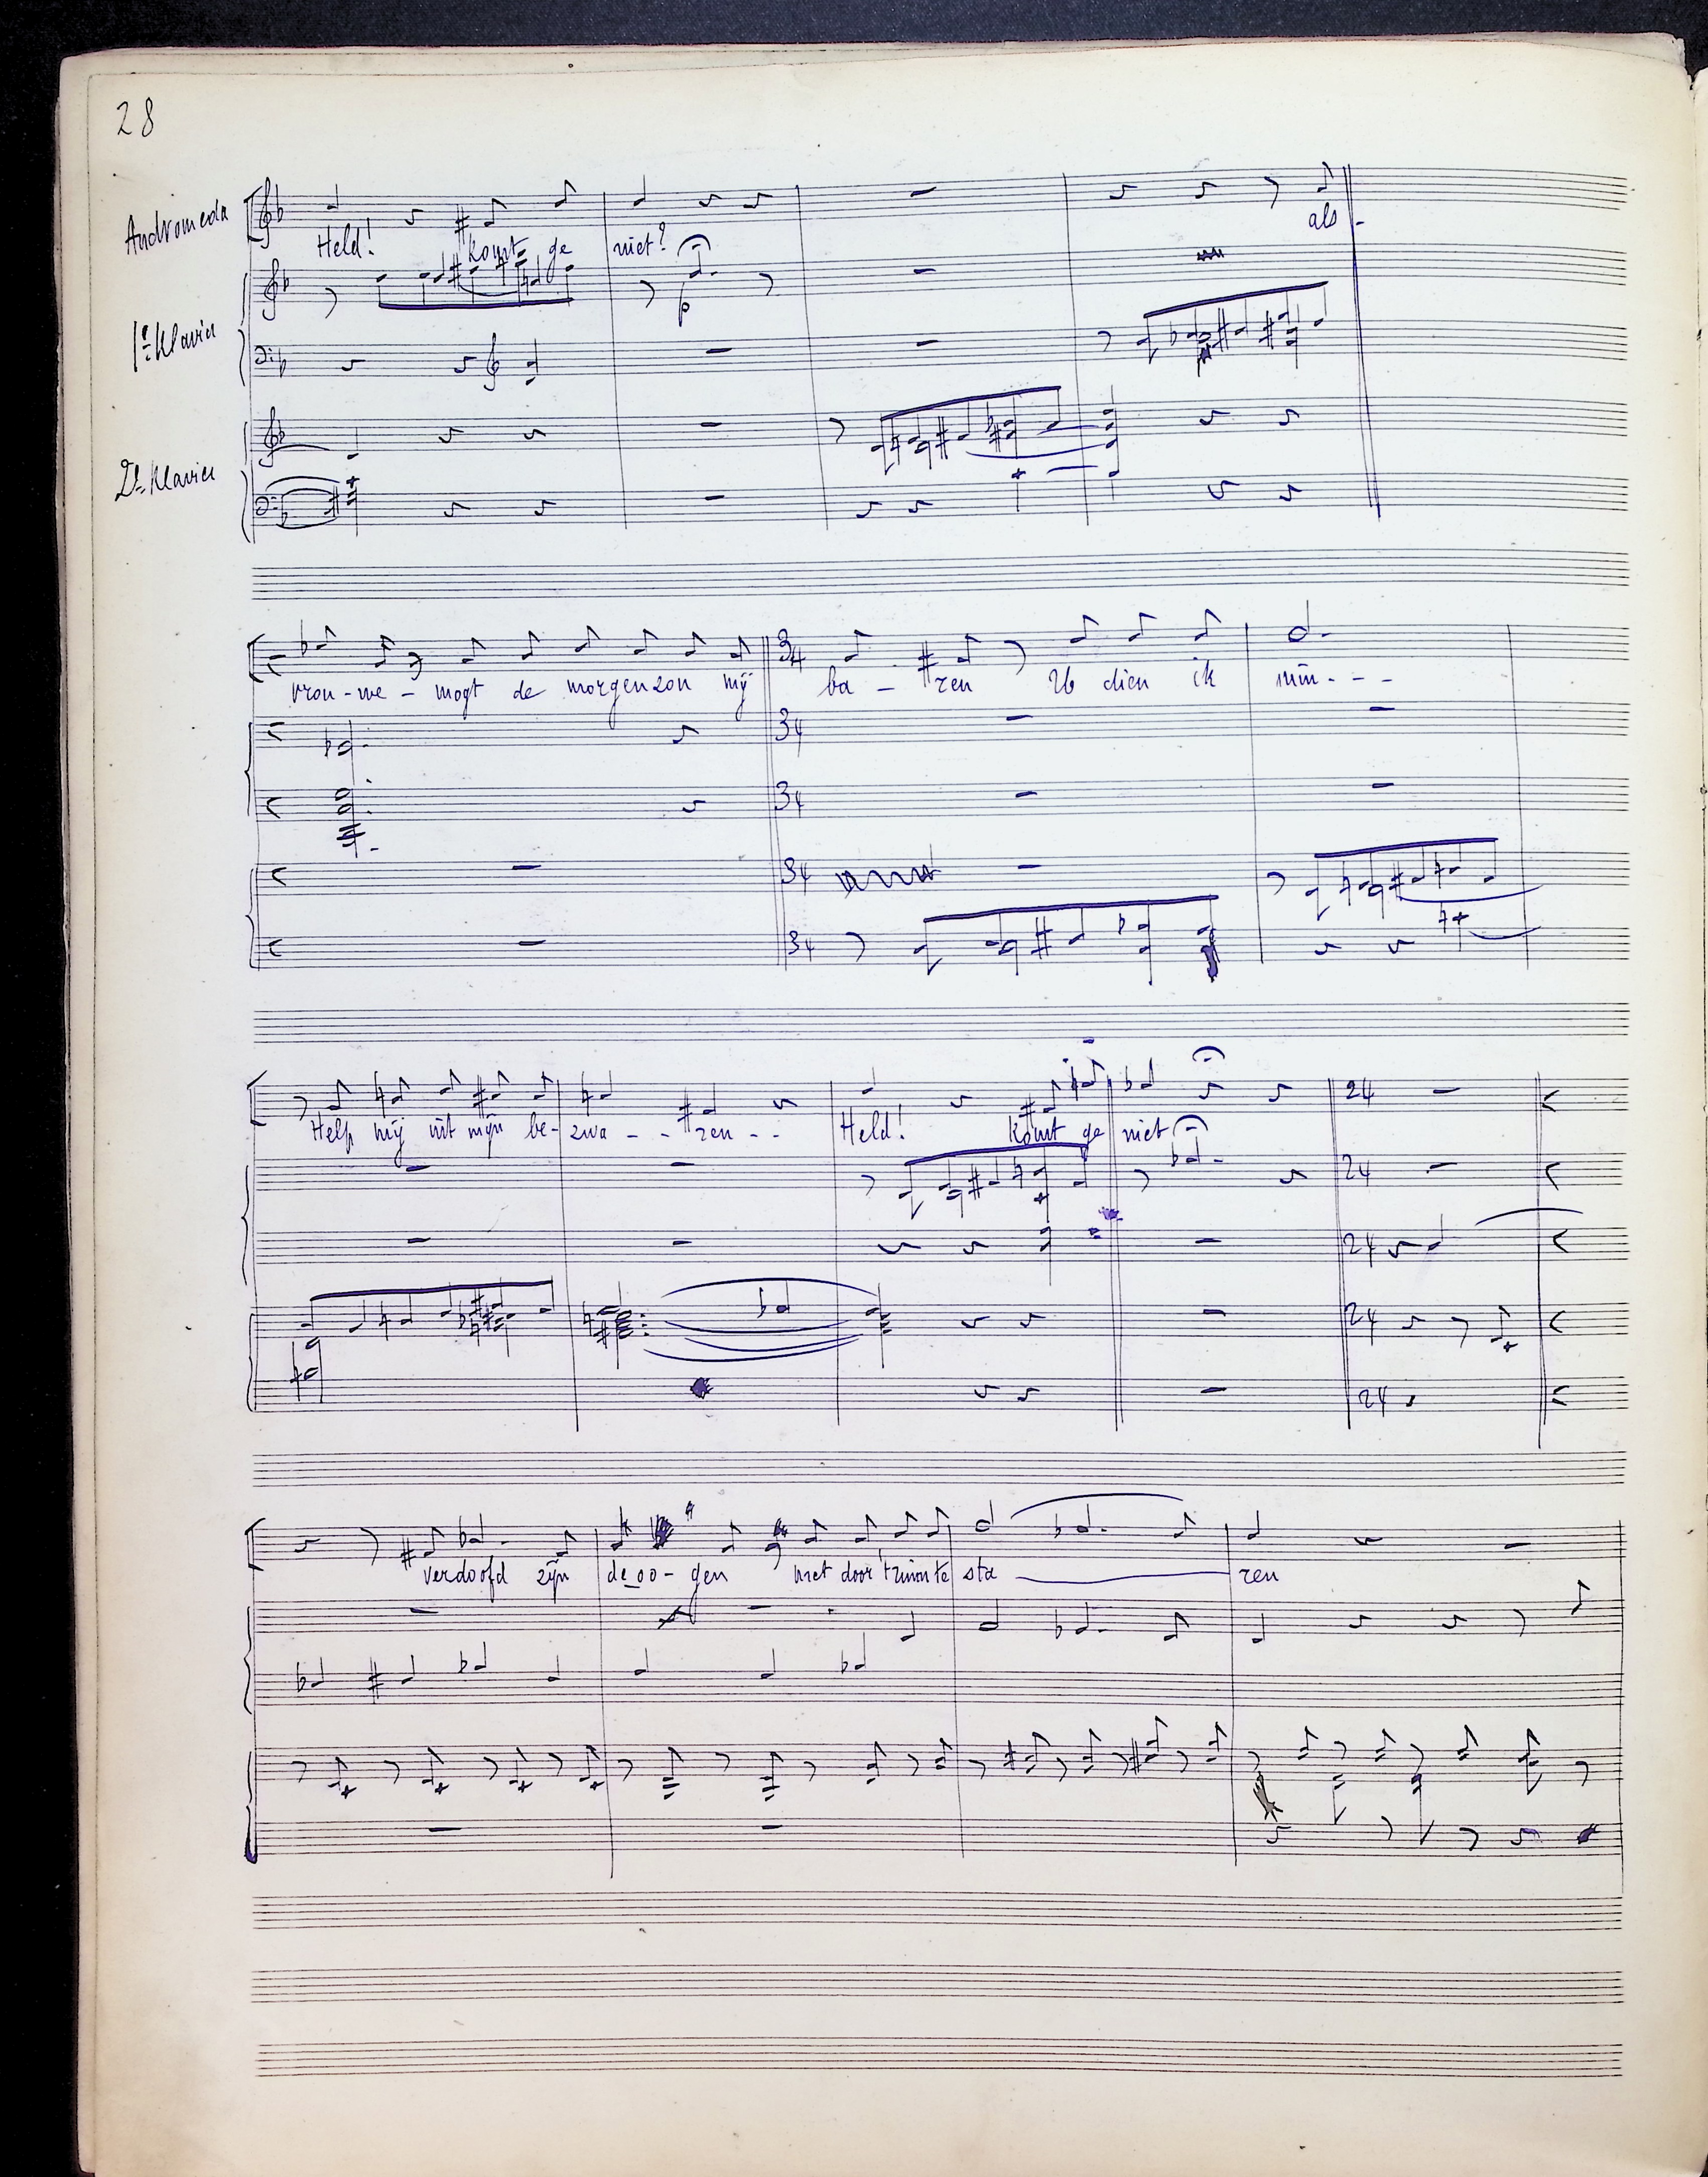 28
Andromeda
Held! komt ge niet? als -
1e Klavier
2e Klavier
vrou - we - mogt de morgenzon mij ba - ren U dien ik min - - -
34
34
34
34
Help mij uit mijn be - zwa - - ren - - Held! komt ge niet
24
24
24
24
24
verdoofd zijn de oo - gen met door 't ruimte sta ren